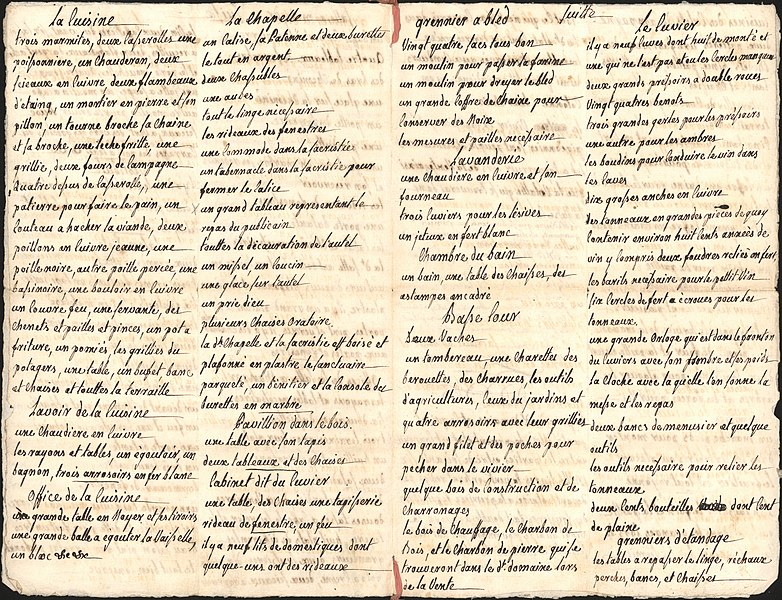 la Cuisine
trois marmites, deux Casserolles une
poissonniere, un Chauderon, deux
sceaux en Cuivre deux flambeaux
d'etaing, un mortier en pierre et son
pillon, un tourne broche sa Chaine
et sa broche, une leche fritte, une
grillie, deux fours de Campagne
quatre depus de Casserolle, une
patierre pour faire le pain, un
Couteau a hacher la viande, deux
poillons en Cuivre jeaune, une
poille noire, autre poille percée, une
bassinoire, une bouloir en Cuivre
un Couvre feu, une servante, des
Chenets et pailles et pinces, un pot a
friture, un porniés, les grilliés du
potagers, une table, un bupet banc
et Chaises et touttes la terraille
Lavoir de la Cuisine
une Chaudiere en Cuivre
les rayons et tables, un egoutoir, un
bagnon, trois arrosoirs en fer blanc
Office de la Cuisine
grande table en Noyer et ses tiroirs
une grande balle a egouter la Vaisselle,
un bloc
la Chapelle
un Calise, sa Patenne et deux burettes
le tout en argent
deux Chasubles
une aubes
tout le linge necessaire
les rideaux des fenestres
une Commode dans la sacristie
un tabernacle dans la sacristie pour
fermer le Calice
un grand tableau representant le
repas du publicain
touttes la décauration de l'autel
un missel, un Coucin
une glace sur l'autel
un prie dieu
plusieurs Chaises Oratoire
la de Chapelle et la sacristie est boisé et
plafonné en plastre le sanctuaire
parqueté, un bénitier et la Consolle des
burettes en marbre
Pavillion dans le bois
une table avec son tapis
deux tableaux et des Chaises
Cabinet dit du Cuvier
une table, des Chaises une tapisserie
rideau de fenestre, un feu
il y a neuf lits de domestiques dont
quelque-uns ont des rideaux
Suitte
grennier a bled
Vingt quatre sacs tous bon
un moulin pour passer la farine
un moulin pour dreyer le bled
un grande Coffre de Chaine pour
Conserver des Noix
les mesures et pailles necessaire
Lavanderie
une Chaudiere en Cuivre et son
fourneau
trois Cuviers pour les lésives
un jeteux en fert blanc
Chambre du bain
un bain, une table des Chaises, des
estampes en cadre
Basse Cour
Deux Vaches
un tombereau, une Charettes des
berouettes, des Charrues, les outils
d'agricultures, Ceux du jardins et
quatre arrosoirs avec leur grillies
un grand filet et des poches pour
pecher dans le vivier
quelque bois de Construction et de
Charronages
le bois de Chauffage, le Charbon de
Bois, et le Charbon de pierre qui se
trouveront dans le dt. domaine lors
de la Vente
Le Cuvier
il y a neuf Cuves dont huit de monté et
une qui ne l'est pas et ou les Cercles manque
deux grands pressoirs a double roues
Vingt quatres benots
trois grandes gerles pour les pressoirs
une autre pour les ambres
les boudins pour Conduire le vin dans
les Caves
dix grosses anches en Cuivre
des tonneaux en grandes pieces de quoy
Contenir environ huit Cents années de
vin y Compris deux foudres reliés en fert
les barils necessaire pour le pettit Vin
six Cercles de fert a écroues pour les
tonneaux
une grande Orloge qui est dans le fronton
du Cuviers avec son timbre et ses poids
la Cloche avec la quelle l'on sonne la
messe et les repas
deux bancs de menusier et quelque
outils
les outils necessaire pour relier les
tonneaux
deux Cents bouteilles dont Cent
de plaine
grenniers d'étandage
les tables a repasser le linge, réchaux
perches, bancs, et Chaises